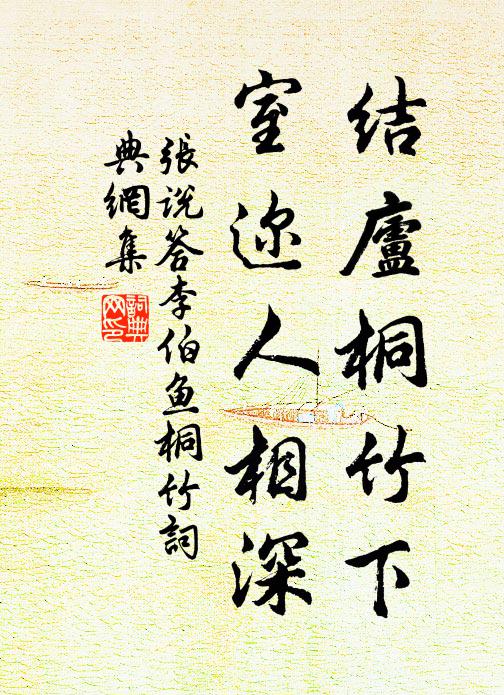 结廬桐竹下
室迩人相深
張说答李伯鱼桐竹詞
典網集
詞典網印